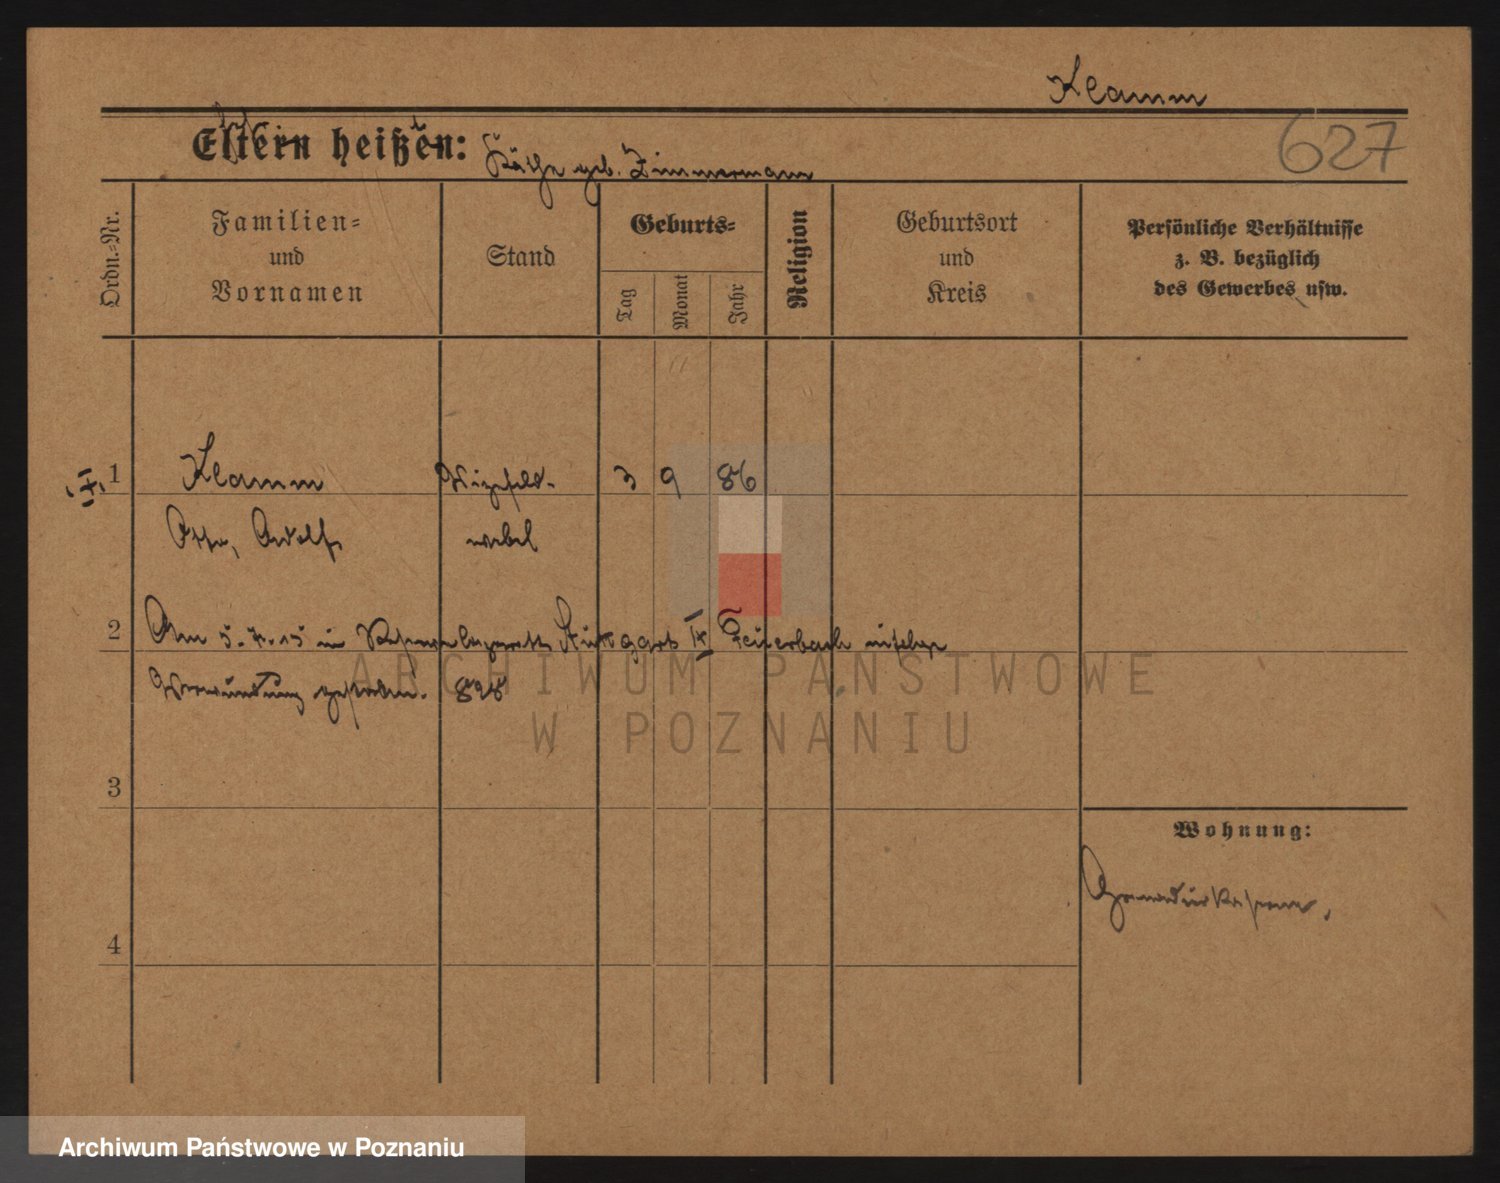 Klamm
627
Eltern heißen:
Käthe geb. Zimmermann
Ordn.-Nr.
Familien-
und
Vornamen
Stand
Geburts-
Tag
Monat
Jahr
Religion
Geburtsort
und
Kreis
Persönliche Verhältnisse
z. B. bezüglich
des Gewerbes usw.
1 Klamm Vizefeld- 3 9 86
Otto, Adolf
webel
2 Am 5. 7. 15 in Reservelazarett Stuttgart IX Feuerbach infolge
Verwundung gestorben. 898
ARCHIWUM PAŃSTWOWE
W POZNANIU
3
Wohnung:
Grenadierkaserne,
4
Archiwum Państwowe w Poznaniu